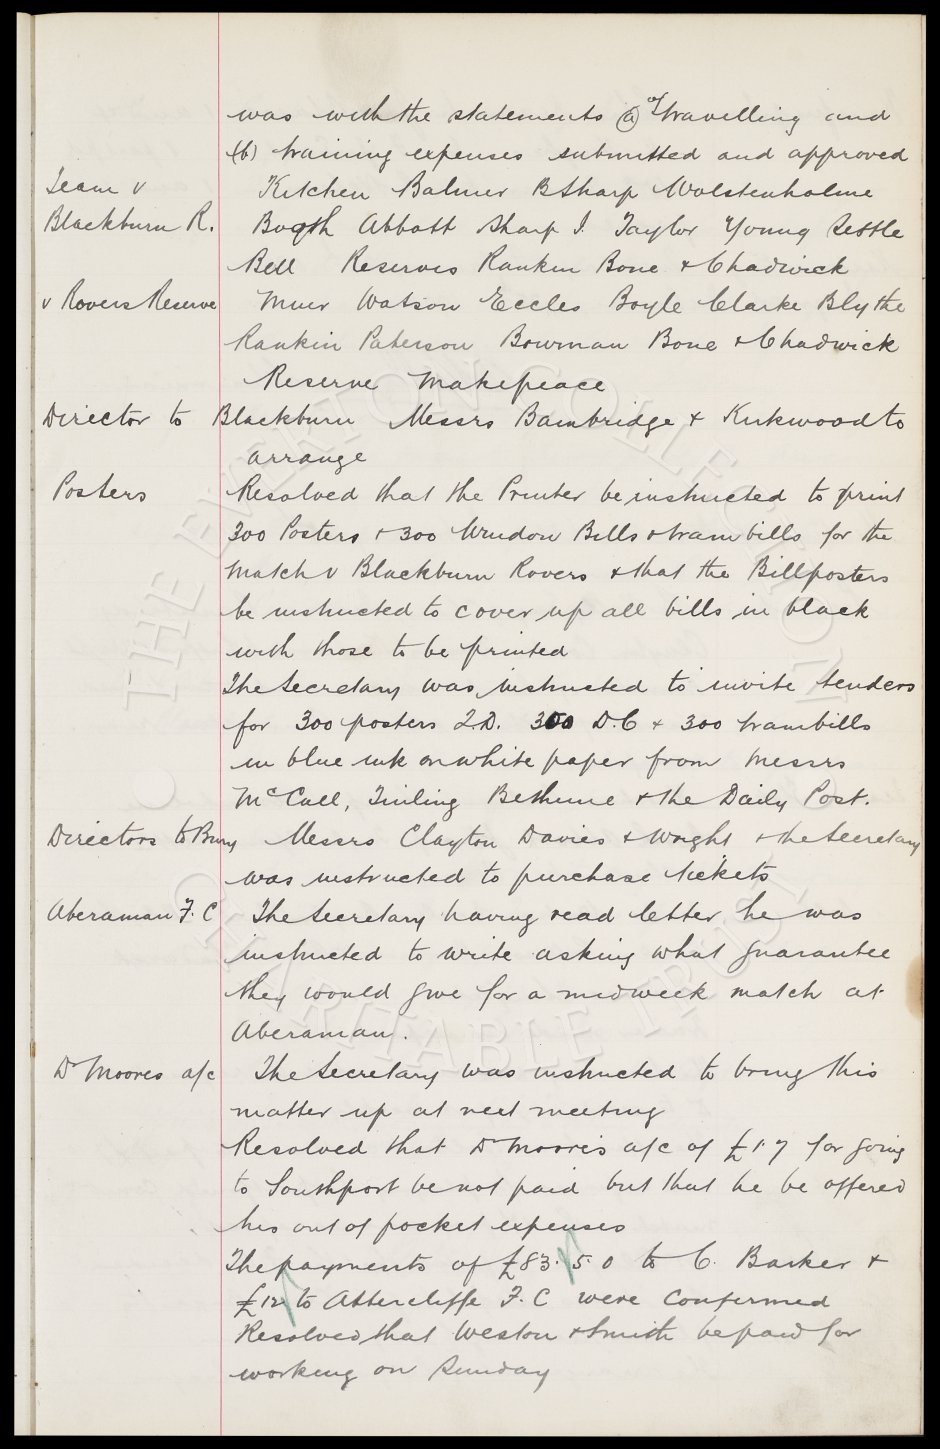 was with the statements (a) of travelling and
(b) training expenses submitted and approved
Team v Kitchen Balmer B Sharp Wolstenholme
Blackburn R. Booth Abbott Sharp J. Taylor Young Settle
Bell Reserves Rankin Bone & Chadwick
v Rovers Reserve Muir Watson Eccles Boyle Clarke Blythe
Rankin Paterson Bowman Bone & Chadwick
Reserve Makepeace
Director to Blackburn Messrs Bainbridge & Kirkwood to
arrange
Posters Resolved that the Printer be instructed to print
300 Posters & 300 Window Bills & tram bills for the
match v Blackburn Rovers & that the Billposters
be instructed to cover up all bills in black
with those to be printed
The Secretary was instructed to invite tenders
for 300 posters 2.D. 300 D.C & 300 trambills
in blue ink on white paper from Messrs
McCall, Tinling Bethune & the Daily Post.
Directors to Bury Messrs Clayton Davies & Wright & the Secretary
was instructed to purchase tickets
Aberaman F. C The Secretary having read letter he was
instructed to write asking what guarantee
they would give for a midweek match at
Aberaman.
Dr Moores a/c The Secretary was instructed to bring this
matter up at next meeting
Resolved that Dr Moore's a/c of £1.7 for going
to Southport be not paid but that he be offered
his out of pocket expenses
The payments of £83.5.0 to C. Barker &
£12 to Attercliffe F. C were confirmed
Resolved that Weston & Smith be paid for
working on Sunday
THE EVERTON COLLECTION
CHARITABLE TRUST
©